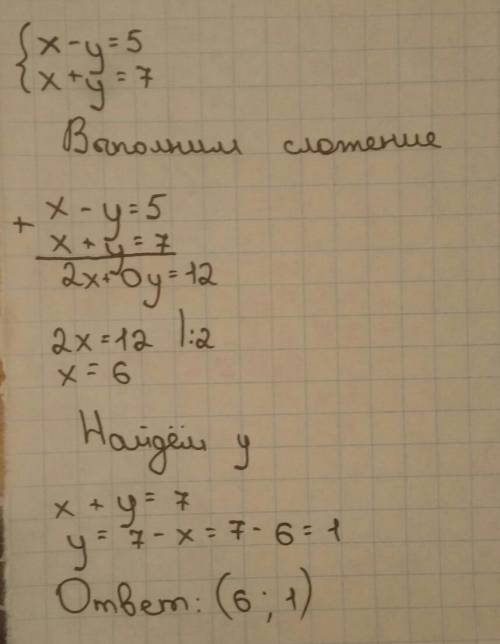 { x - y = 5
x + y = 7
Выполним сложение
+ x - y = 5
x + y = 7
2x + 0y = 12
2x = 12 |:2
x = 6
Найдём y
x + y = 7
y = 7 - x = 7 - 6 = 1
Ответ: (6 ; 1)